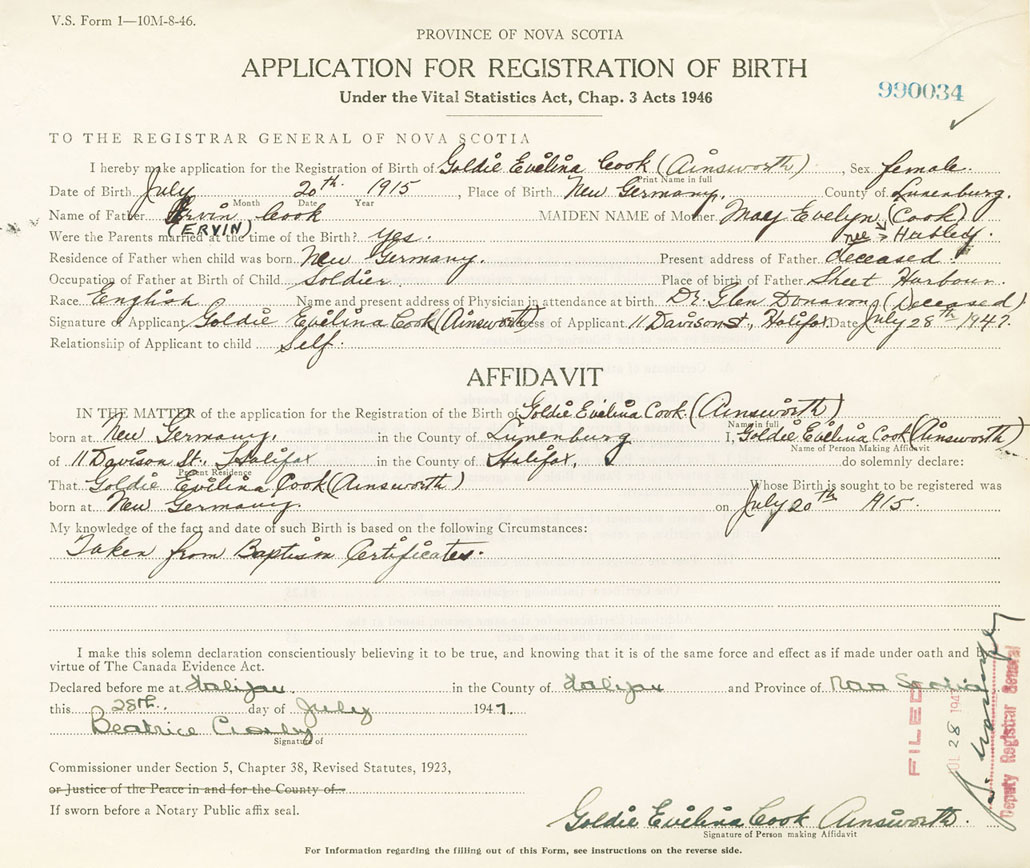 V.S. Form 1—10M-8-46.
PROVINCE OF NOVA SCOTIA
APPLICATION FOR REGISTRATION OF BIRTH
Under the Vital Statistics Act, Chap. 3 Acts 1946
990034
TO THE REGISTRAR GENERAL OF NOVA SCOTIA
I hereby make application for the Registration of Birth of Goldie Evilina Cook (Ainsworth), Sex female.
Print Name in full
Date of Birth July 20th 1915, Place of Birth New Germany, County of Lunenburg.
Month Date Year
Name of Father Ervin Cook MAIDEN NAME of Mother May Evelyn (Cook)
(ERVIN) nee Hubley.
Were the Parents married at the time of the Birth? yes.
Residence of Father when child was born New Germany. Present address of Father deceased.
Occupation of Father at Birth of Child Soldier. Place of birth of Father Sheet Harbour.
Race English Name and present address of Physician in attendance at birth Dr. Glen Donavon (Deceased)
Signature of Applicant Goldie Evilina Cook (Ainsworth) ess of Applicant 11 Davison St., Halifax Date July 28th 1947.
Relationship of Applicant to child Self.
AFFIDAVIT
IN THE MATTER of the application for the Registration of the Birth of Goldie Evilina Cook (Ainsworth)
Name in full
born at New Germany, in the County of Lunenburg I, Goldie Evilina Cook (Ainsworth)
Name of Person Making Affidavit
of 11 Davison St., Halifax in the County of Halifax, do solemnly declare:
Present Residence
That Goldie Evilina Cook (Ainsworth) Whose Birth is sought to be registered was
born at New Germany. on July 20th 1915.
My knowledge of the fact and date of such Birth is based on the following Circumstances:
Taken from Baptism Certificates.
I make this solemn declaration conscientiously believing it to be true, and knowing that it is of the same force and effect as if made under oath and by
virtue of The Canada Evidence Act.
Declared before me at Halifax in the County of Halifax and Province of Nova Scotia
this 28th. day of July 1947.
Beatrice
Signature of
Commissioner under Section 5, Chapter 38, Revised Statutes, 1923,
or Justice of the Peace in and for the County of
If sworn before a Notary Public affix seal.
FILED
JUL 28 1947
Deputy Registrar General
Goldie Evilina Cook Ainsworth.
Signature of Person making Affidavit
For Information regarding the filling out of this Form, see instructions on the reverse side.